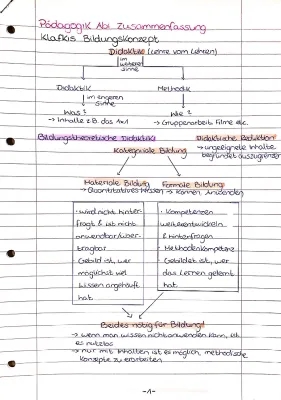 Pädagogik Abi Zusammenfassung
Klafkis Bildungskonzept
Didaktik (Lehre vom Lehren)
im weiteren Sinne
Didaktik
Methodik
im engeren Sinne
Was?
Wie?
→ Inhalte z.B. das Auf
→ Gruppenarbeit, Filme etc.
Bildungstheoretische Didaktik:
Didaktische Reduktion:
→ ungeeignete Inhalte
begründet auszugrenzen
Kategoriale Bildung
Materiale Bildung
→ Quantitatives Wissen
Formale Bildung:
→ Können Anwenden
· wird nicht hinter-
fragt & ist nicht
anwendbar/über-
tragbar
· Gebildet ist, wer
möglichst viel
Wissen angehäuft
hat
· Kompetenzen
weiterentwickeln
& hinterfragen
· Methodenkompetenz
· Gebildet ist, wer
das Lernen gelernt
hat
Beides nötig für Bildung!!
→ wenn man wissen nicht anwenden kann, ist
es nutzlos
→ nur mit Inhalten ist es möglich, methodische
Konzepte zu erarbeiten
-1-